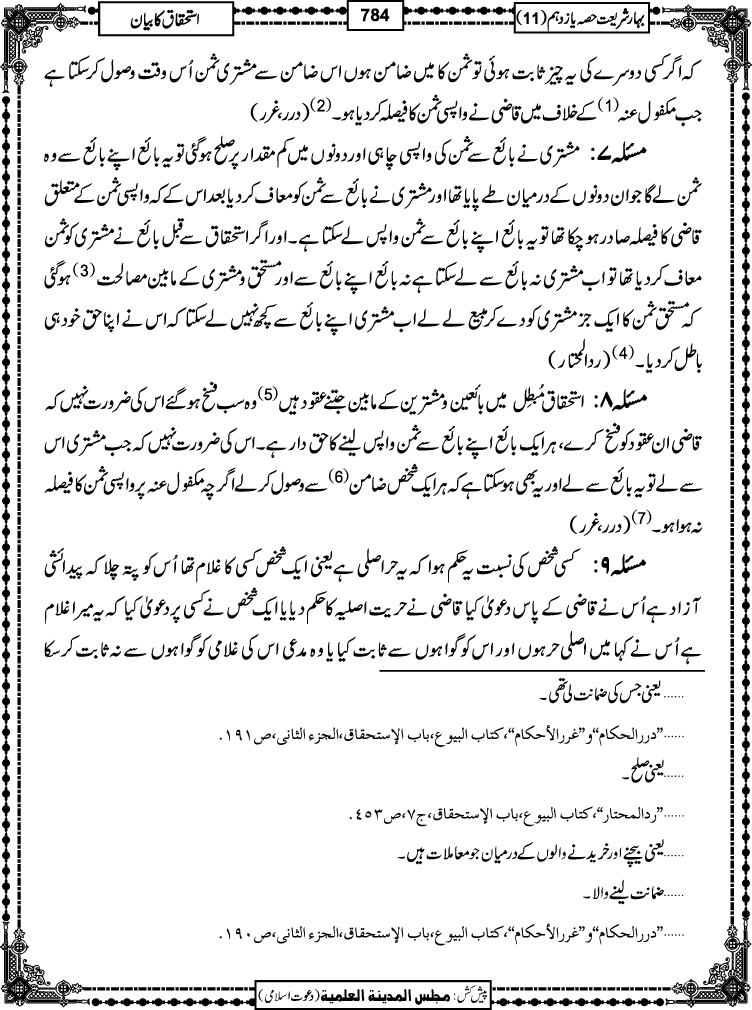 بہارِ شریعت حصہ یازدہم (11)
784
استحقاق کا بیان
کہ اگر کسی دوسرے کی یہ چیز ثابت ہوئی تو ثمن کا میں ضامن ہوں اس ضامن سے مشتری ثمن اُس وقت وصول کر سکتا ہے
جب مکفول عنہ(1) کے خلاف میں قاضی نے واپسی ثمن کا فیصلہ کر دیا ہو۔(2) (درر، غرر)
مسئلہ ۷: مشتری نے بائع سے ثمن کی واپسی چاہی اور دونوں میں کم مقدار پر صلح ہوگئی تو یہ بائع اپنے بائع سے وہ
ثمن لے گا جو ان دونوں کے درمیان طے پایا تھا اور مشتری نے بائع سے ثمن کو معاف کر دیا بعد اس کے کہ واپسی ثمن کے متعلق
قاضی کا فیصلہ صادر ہو چکا تھا تو یہ بائع اپنے بائع سے ثمن واپس لے سکتا ہے۔ اور اگر استحقاق سے قبل بائع نے مشتری کو ثمن
معاف کر دیا تھا تو اب مشتری نہ بائع سے لے سکتا ہے نہ بائع اپنے بائع سے اور مستحق و مشتری کے مابین مصالحت(3) ہوگئی
کہ مستحق ثمن کا ایک جز مشتری کو دے کر مبیع لے لے اب مشتری اپنے بائع سے کچھ نہیں لے سکتا کہ اس نے اپنا حق خود ہی
باطل کر دیا۔(4) (ردالمحتار)
مسئلہ ۸: استحقاق مُبطِل میں بائعین و مشترین کے مابین جتنے عقود ہیں(5) وہ سب فسخ ہو گئے اس کی ضرورت نہیں کہ
قاضی ان عقود کو فسخ کرے، ہر ایک بائع اپنے بائع سے ثمن واپس لینے کا حق دار ہے۔ اس کی ضرورت نہیں کہ جب مشتری اس
سے لے تو یہ بائع سے لے اور یہ بھی ہو سکتا ہے کہ ہر ایک شخص ضامن(6) سے وصول کر لے اگرچہ مکفول عنہ پر واپسی ثمن کا فیصلہ
نہ ہوا ہو۔(7) (درر، غرر)
مسئلہ ۹: کسی شخص کی نسبت یہ حکم ہوا کہ یہ حر اصلی ہے یعنی ایک شخص کسی کا غلام تھا اُس کو پتہ چلا کہ پیدائشی
آزاد ہے اُس نے قاضی کے پاس دعویٰ کیا قاضی نے حریت اصلیہ کا حکم دیا یا ایک شخص نے کسی پر دعویٰ کیا کہ یہ میرا غلام
ہے اُس نے کہا میں اصلی حر ہوں اور اس کو گواہوں سے ثابت کیا یا وہ مدعی اس کی غلامی کو گواہوں سے نہ ثابت کر سکا
......یعنی جس کی ضمانت لی تھی۔
......”دررالحکام“و”غررالأحکام“،کتاب البیوع،باب الإستحقاق،الجزء الثانی،ص۱۹۱.
......یعنی صلح۔
......”ردالمحتار“،کتاب البیوع،باب الإستحقاق،ج۷،ص٤٥٣.
......یعنی بیچنے اور خریدنے والوں کے درمیان جو معاملات ہیں۔
......ضمانت لینے والا۔
......”دررالحکام“و”غررالأحکام“،کتاب البیوع،باب الإستحقاق،الجزء الثانی،ص۱۹۰.
پیش کش: مجلس المدینة العلمیة (دعوت اسلامی)